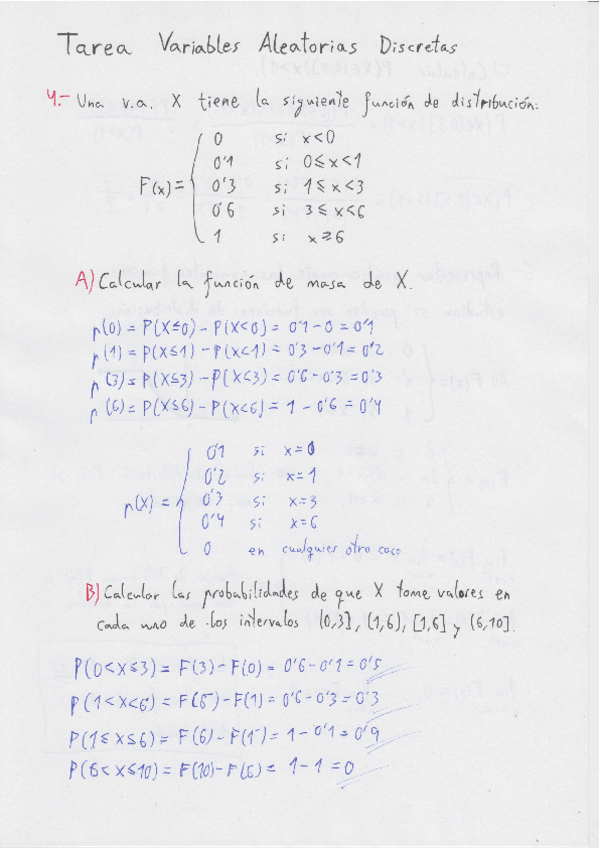 Tarea Variables Aleatorias Discretas
4.- Una v.a. X tiene la siguiente función de distribución:
F(x) = { 0 si x<0
0'1 si 0≤x<1
0'3 si 1≤x<3
0'6 si 3≤x<6
1 si x≥6
A) Calcular la función de masa de X.
p(0) = P(X≤0) - P(X<0) = 0'1 - 0 = 0'1
p(1) = P(X≤1) - P(X<1) = 0'3 - 0'1 = 0'2
p(3) = P(X≤3) - P(X<3) = 0'6 - 0'3 = 0'3
p(6) = P(X≤6) - P(X<6) = 1 - 0'6 = 0'4
p(X) = { 0'1 si x=0
0'2 si x=1
0'3 si x=3
0'4 si x=6
0 en cualquier otro caso
B) Calcular las probabilidades de que X tome valores en
cada uno de los intervalos (0,3], (1,6), [1,6] y (6,10].
P(0<X≤3) = F(3) - F(0) = 0'6 - 0'1 = 0'5
P(1<X<6) = F(6⁻) - F(1) = 0'6 - 0'3 = 0'3
P(1≤X≤6) = F(6) - F(1⁻) = 1 - 0'1 = 0'9
P(6<X≤10) = F(10) - F(6) = 1 - 1 = 0